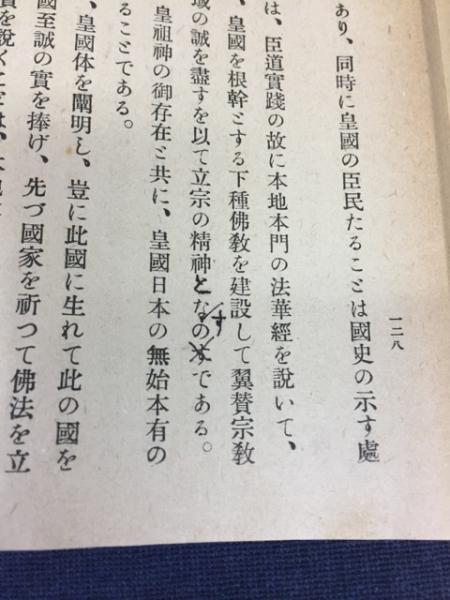 一二八
あり、同時に皇國の臣民たることは國史の示す處
は、臣道實踐の故に本地本門の法華經を說いて、
、皇國を根幹とする下種佛敎を建設して翼賛宗敎
域の誠を盡すを以て立宗の精神となすのである。
皇祖神の御存在と共に、皇國日本の無始本有の
ることである。
、皇國体を闡明し、豈に此國に生れて此の國を
國至誠の實を捧げ、先づ國家を祈つて佛法を立
を說くことは、